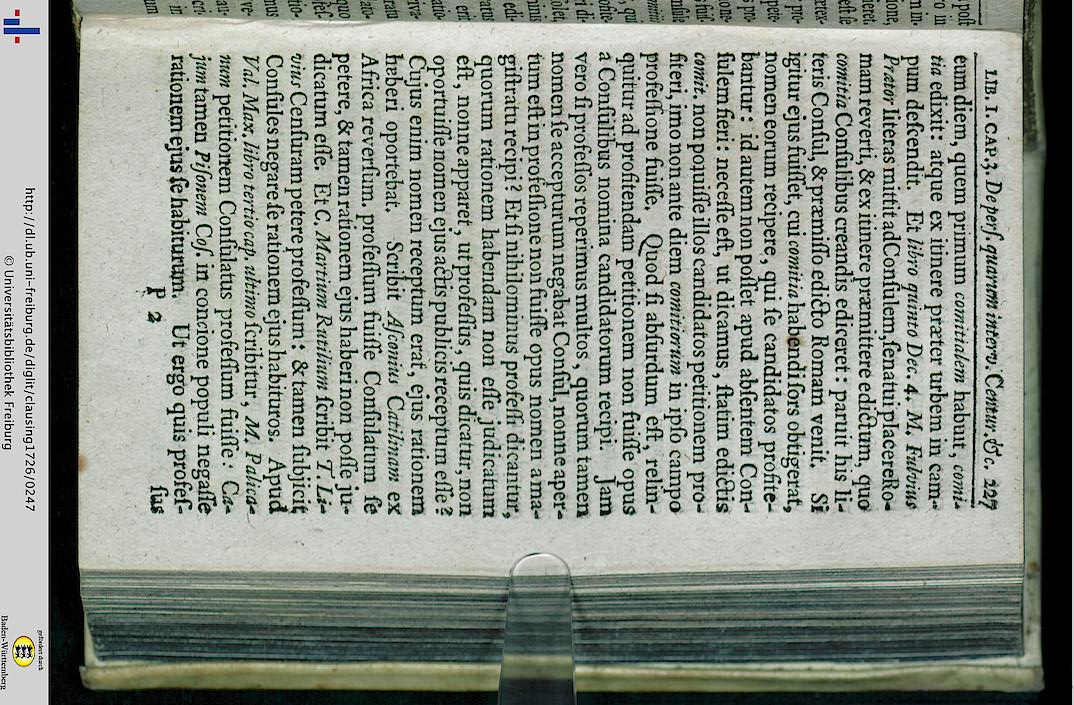 LIB. I. CAP. 3. De perſ. quarum interv. Centur &c. 227
eum diem, quem primum comitialem habuit, comi-
tia edixit: atque ex itinere præter urbem in cam-
pum deſcendit. Et libro quinto Dec. 4. M. Fulvius
Prætor literas mittit ad Conſulem, ſenatui placere Ro-
mam reverti, & ex itinere præmittere edictum, quo
comitia Conſulibus creandis ediceret: paruit his li-
teris Conſul, & præmiſſo edicto Romam venit. Si
igitur ejus fuiſſet, cui comitia habendi ſors obtigerat,
nomen eorum recipere, qui ſe candidatos profite-
bantur: id autem non poſſet apud abſentem Con-
ſulem fieri: neceſſe eſt, ut dicamus, ſtatim edictis
comit. non potuiſſe illos candidatos petitionem pro-
fiteri, imo non ante diem comitiorum in ipſo campo
profeſſione fuiſſe. Quod ſi abſurdum eſt, relin-
quitur ad profitendam petitionem non fuiſſe opus
a Conſulibus nomina candidatorum recipi. Jam
vero ſi profeſſos reperimus multos, quorum tamen
nomen ſe accepturum negabat Conſul, nonne aper-
tum eſt in profeſſione non fuiſſe opus nomen a ma-
giſtratu recipi? Et ſi nihilominus profeſſi dicantur,
quorum rationem habendam non eſſe judicatum
eſt, nonne apparet, ut profeſſus, quis dicatur, non
oportuiſſe nomen ejus actis publicis receptum eſſe?
Cujus enim nomen receptum erat, ejus rationem
heberi oportebat. Scribit Aſconius Catilinam ex
Africa reverſum, profeſſum fuiſſe Conſulatum ſe
petere, & tamen rationem ejus haberi non poſſe ju-
dicatum eſſe. Et C. Martium Rutilium ſcribit T. Li-
vius Cenſuram petere profeſſum: & tamen ſubjicit
Conſules negare ſe rationem ejus habituros. Apud
Val. Max. libro tertio cap. ultimo ſcribitur, M. Palica-
num petitionem Conſulatus profeſſum fuiſſe: Ca-
jum tamen Piſonem Coſ. in concione populi negaſſe
rationem ejus ſe habiturum. Ut ergo quis profeſ-
P 2 ſus
http://dl.ub.uni-freiburg.de/diglit/clausing1726/0247
© Universitätsbibliothek Freiburg
gefördert durch
Baden-Württemberg